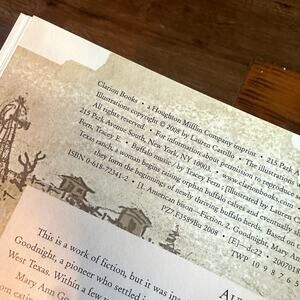 Clarion Books • a Houghton Mifflin Company imprint • 215 Park
Illustrations copyright © 2008 by Lauren Castillo • The illustrations
All rights reserved. • For information about permission to reproduce
215 Park Avenue South, New York, NY 10003. • www.clarionbooks.com •
Fern, Tracey E. • Buffalo music / by Tracey Fern ; illustrated by Lauren
Texas ranch, a woman begins raising orphan buffalo calves and eventually
they form the beginnings of newly thriving buffalo herds. Based on
ISBN 0-618-72341-2 • [1. American bison—Fiction. 2. Goodnight, Mary Ann
PZ7.F3589Bu 2008 • [E]—dc22 • 200701
TWP 10 9 8 7 6 5
This is a work of fiction, but it was
Goodnight, a pioneer who settled
West Texas. Within a few
Mary Ann